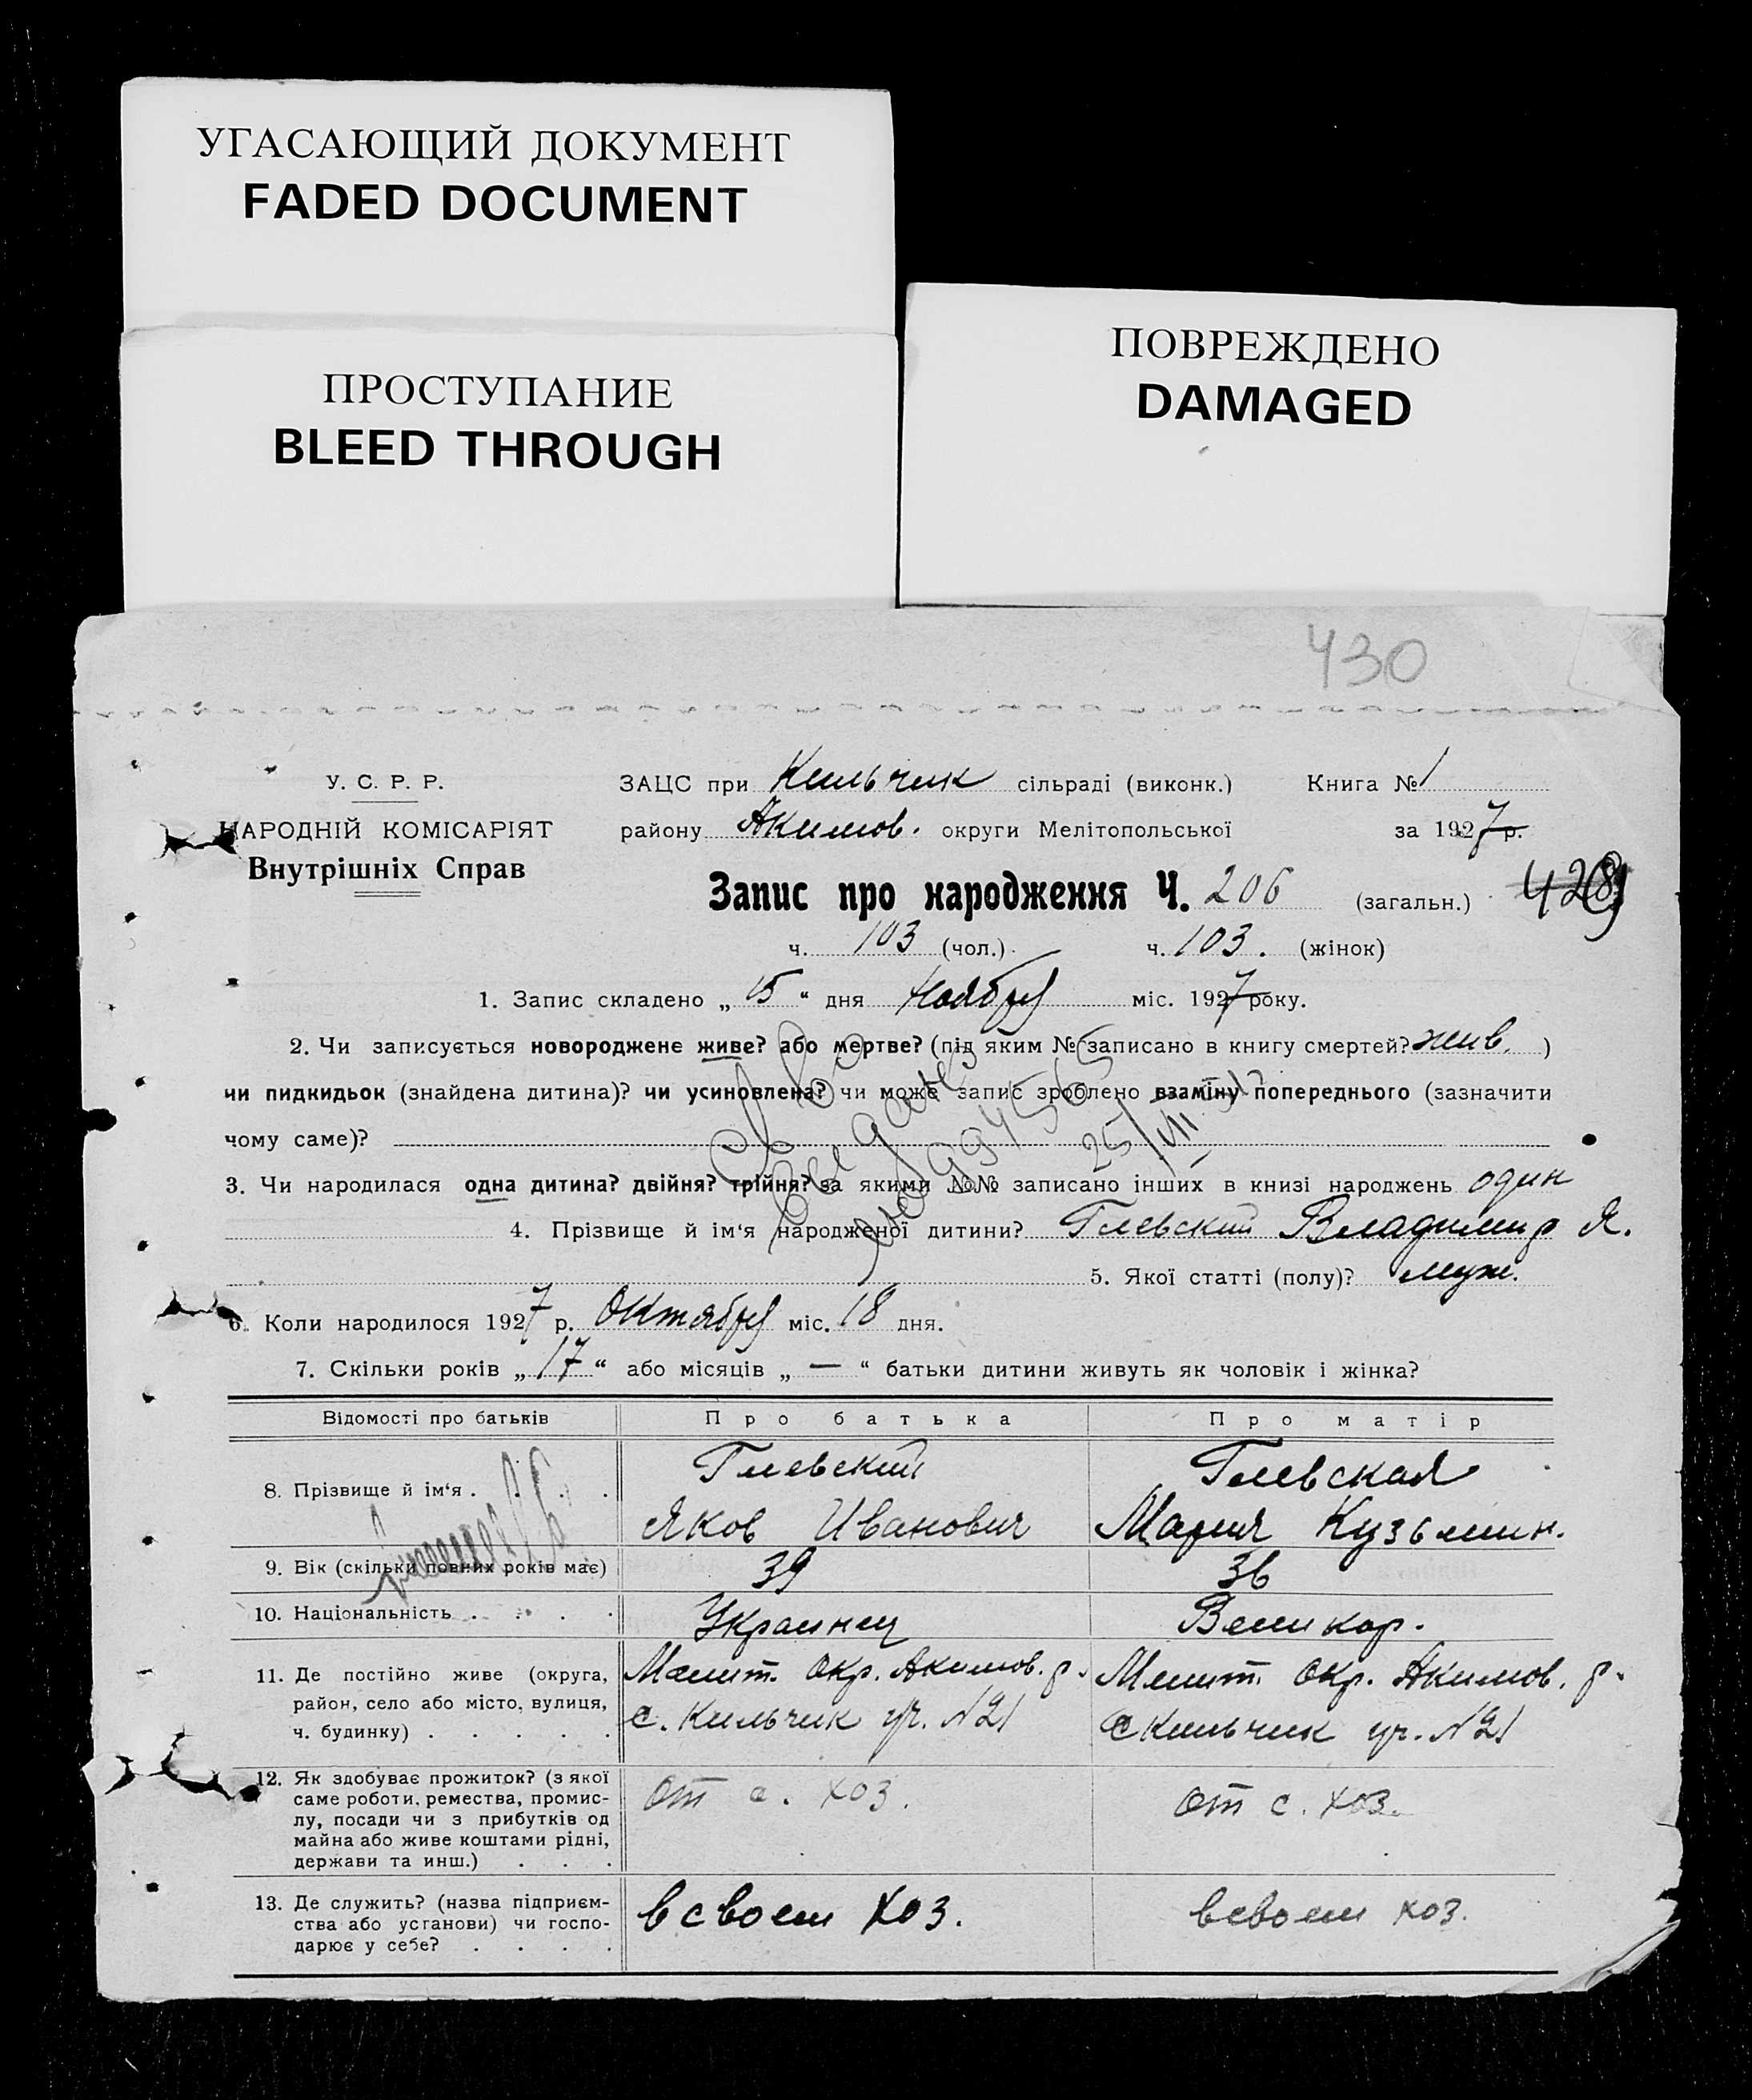 УГАСАЮЩИЙ ДОКУМЕНТ
FADED DOCUMENT
ПРОСТУПАНИЕ
BLEED THROUGH
ПОВРЕЖДЕНО
DAMAGED
430
У. С. Р. Р.
НАРОДНІЙ КОМІСАРІЯТ
Внутрішніх Справ
ЗАЦС при Кильчик сільраді (виконк.) Книга № 1
району Акимов. округи Мелітопольської за 1927 р.
Запис про народження Ч. 206 (загальн.)
ч. 103 (чол.) ч. 103. (жінок)
1. Запис складено „ 15 “ дня Ноября міс. 1927 року.
2. Чи записується новороджене живе? або мертве? (під яким № записано в книгу смертей? жив. )
чи пидкидьок (знайдена дитина)? чи усиновлена? чи може запис зроблено взаміну попереднього (зазначити
чому саме)?
3. Чи народилася одна дитина? двійня? трійня? за якими №№ записано інших в книзі народжень один
4. Прізвище й ім‘я народженої дитини? Глевский Владимир Я.
5. Якої статті (полу)? муж.
6. Коли народилося 1927 р. Октября міс. 18 дня.
7. Скільки років „ 17 “ або місяців „ — “ батьки дитини живуть як чоловік і жінка?
Відомості про батьків Про батька Про матір
8. Прізвище й ім‘я . . . . Глевский Глевская
Яков Иванович Мария Кузьмин.
9. Вік (скільки повних років має) 39 36
10. Національність . . . . Украинец Великор.
11. Де постійно живе (округа, район, село або місто, вулиця, ч. будинку) . . . . .
Мелит. Окр. Акимов. р. Мелит. Окр. Акимов. р.
с. Кильчик уч. №21 с Кильчик уч. №21
12. Як здобуває прожиток? (з якої
саме роботи, ремества, промис-
лу, посади чи з прибутків од
майна або живе коштами рідні,
держави та инш.) . . .
от с. хоз. от с. хоз.
13. Де служить? (назва підприєм-
ства або установи) чи госпо-
дарює у себе? . . . .
в своем хоз. в своем хоз.